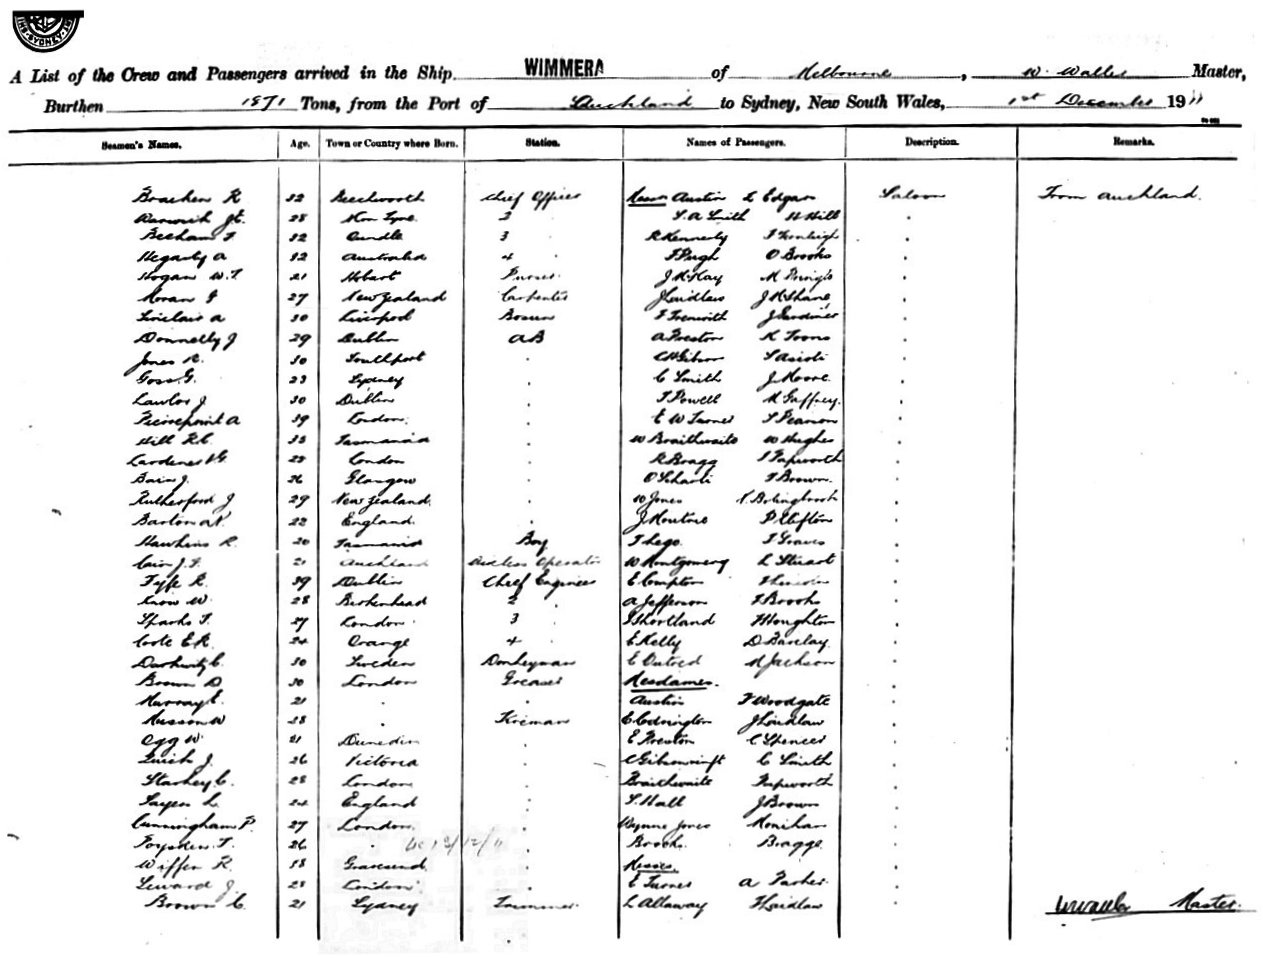 A List of the Crew and Passengers arrived in the Ship WIMMERA of Melbourne, W. Waller Master,
Burthen 1871 Tons, from the Port of Auckland to Sydney, New South Wales, 1st December 1911
Seamen's Names. Age. Town or Country where Born. Station. Names of Passengers. Description. Remarks.
Bracken R 32 Beechworth Chief Officer Messrs Austin L Edgar Saloon From Auckland.
28 2 S. A. Smith H Hill
Beecham F 32 Oundle 3 R Kennerly
Hegarty A 32 Australia 4 F Pugh O Brooks
Hogan W. T 21 Hobart Purser J McKay M Pringle
Moran J 27 New Zealand Carpenter J Laidlaw J McShane
Sinclair A 30 Liverpool Bosun F Trenwith J Gardiner
Donnelly J 29 Dublin AB A Preston K Toons
Jones R. 30 Southport C H Gibson
Goss G. 23 Sydney C Smith J Moore
Lawlor J 30 Dublin F Powell M Gaffney.
Pierrepoint A 39 London. E W Turner S Pearson
Hill R C. 33 Tasmania W Braithwaite W Hughes
Gardener 22 London R Bragg Papworth
Bain J. 26 Glasgow F Brown.
Rutherford J 29 New Zealand. W Jones Bolingbrook
Barton 22 England. J P Clifton
Hawkins R. 20 Tasmania Boy T Lego. J Graves
Cain J. F. 21 Auckland Wireless Operator W Montgomery L Stuart
Fyfe R. 39 Dublin Chief Engineer E Compton
Snow W. 28 Birkenhead 2 A Jefferson F Brooks
Sparks F. 27 London 3 J Shortland F Houghton
Coote E. R. 24 Orange 4 E Kelly D Barclay
30 Sweden Donkeyman E M Jackson
Brown D 30 London Greaser Mesdames.
Murray E. 21 Austin F Woodgate
Musson W 28 Fireman E Codrington J Laidlaw
Ogg W. 21 Dunedin E Preston C Spencer
26 Victoria C Smith
Starkey C. 28 London Braithwaite Papworth
Sayer L. 24 England S Hall J Brown
Cunningham P. 27 London. Wynne Jones Monihan
26 13/12/11 Brooks. Bragge
Wiffen R. 18 Gravesend. Misses.
Seward J. 28 London E Turner A Parker.
Brown C. 21 Sydney Trimmer L Allaway F Laidlaw
W Waller Master.